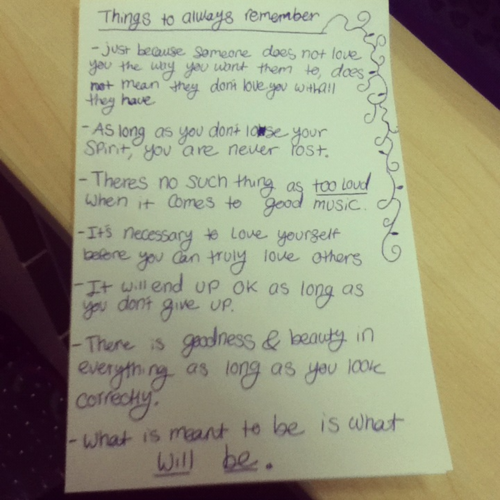 Things to always remember
- just because someone does not love
you the way you want them to, does
not mean they don't love you with all
they have
- As long as you don't lose your
spirit, you are never lost.
- Theres no such thing as too loud
when it comes to good music.
- It's necessary to love yourself
before you can truly love others
- It will end up ok as long as
you don't give up.
- There is goodness & beauty in
everything as long as you look
correctly.
- What is meant to be is what
will be.